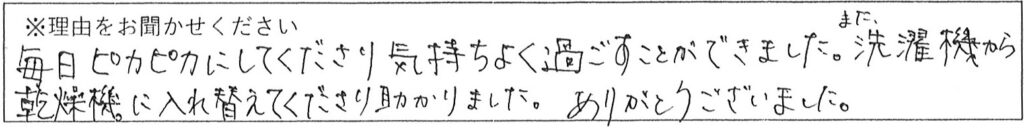 ※理由をお聞かせください
毎日ピカピカにしてくださり気持ちよく過ごすことができました。また、洗濯機から
乾燥機に入れ替えてくださり助かりました。ありがとうございました。